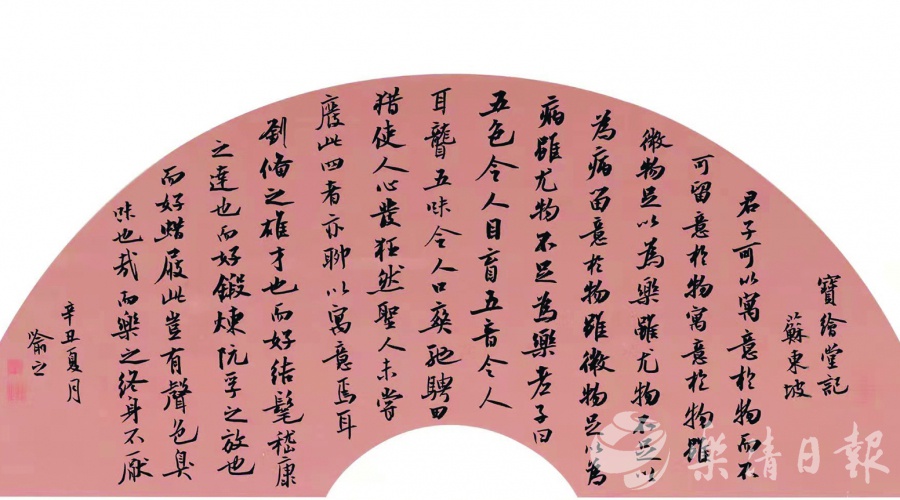 寶繪堂記
蘇東坡
君子可以寓意於物而不
可留意於物寓意於物雖
微物足以為樂雖尤物不足以
為病留意於物雖微物足以為
病雖尤物不足為樂老子曰
五色令人目盲五音令人
耳聾五味令人口爽馳騁田
猎使人心發狂然聖人未嘗
廢此四者亦聊以寓意焉耳
劉備之雄才也而好結髦嵇康
之達也而好鍛煉阮孚之放也
而好蜡屐此豈有聲色臭
味也哉而樂之終身不厭
辛丑夏月
之
樂清日報